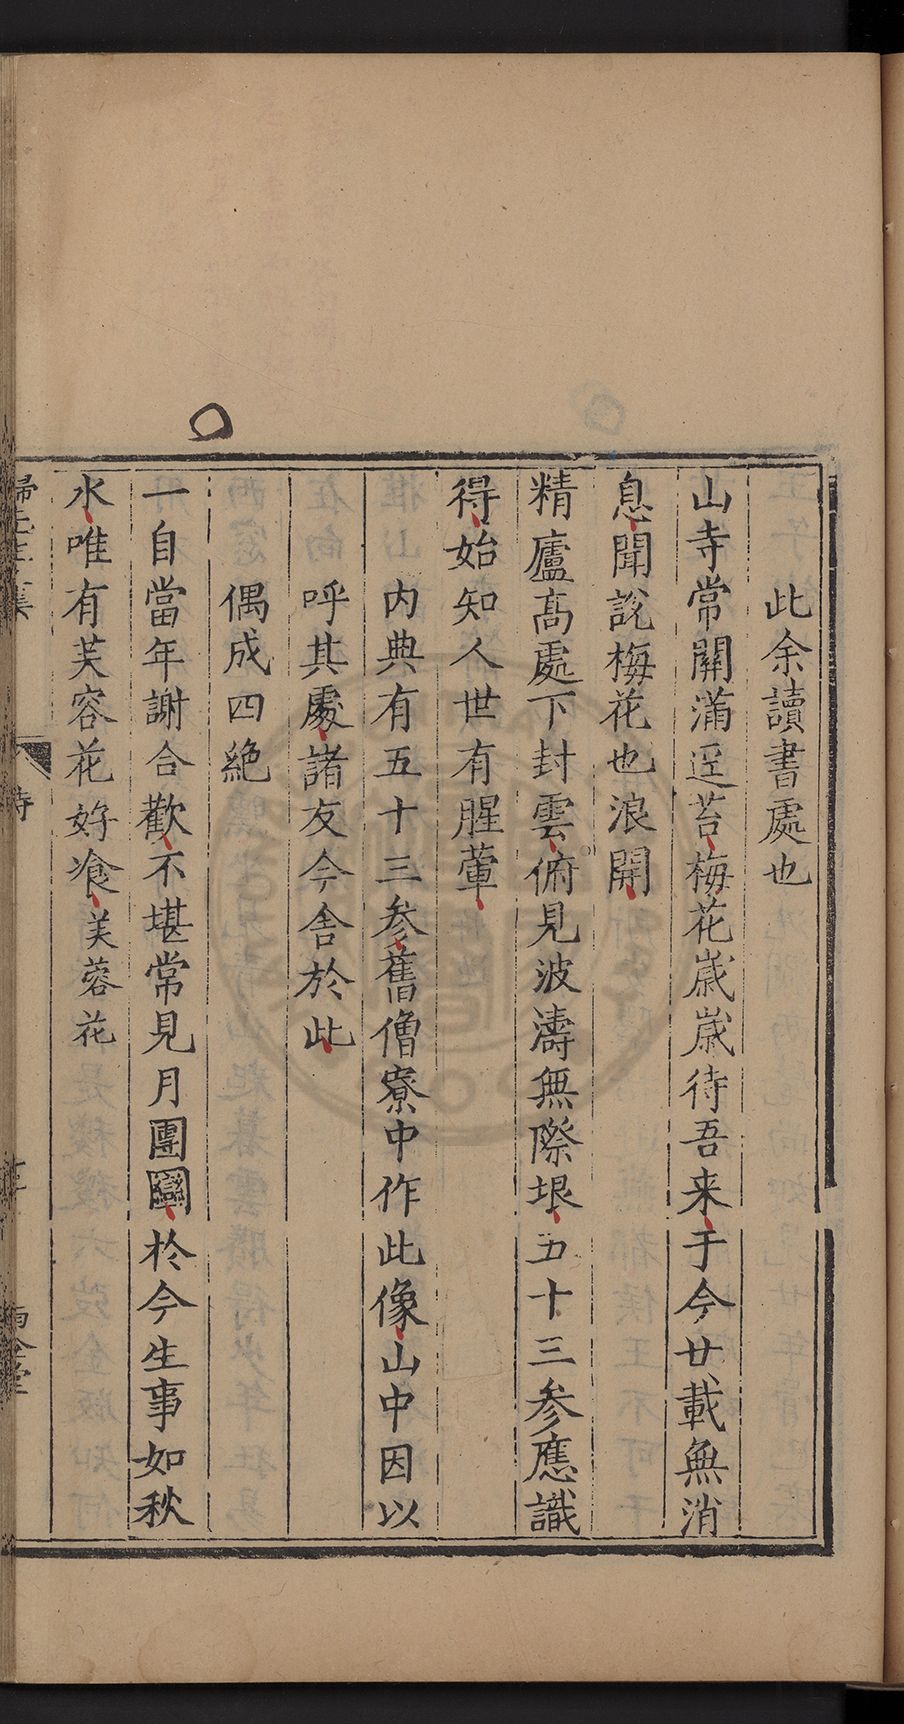 此余讀書處也
山寺常關滿逕苔梅花歲歲待吾来于今廿載無消
息聞說梅花也浪開
精廬髙處下封雲俯見波濤無際垠五十三參應識
得始知人世有腥葷
内典有五十三參舊僧寮中作此像山中因以
呼其處諸友今舍於此
偶成四絶
一自當年謝合歡不堪常見月團圞於今生事如秋
水唯有芙容花好飡芙蓉花